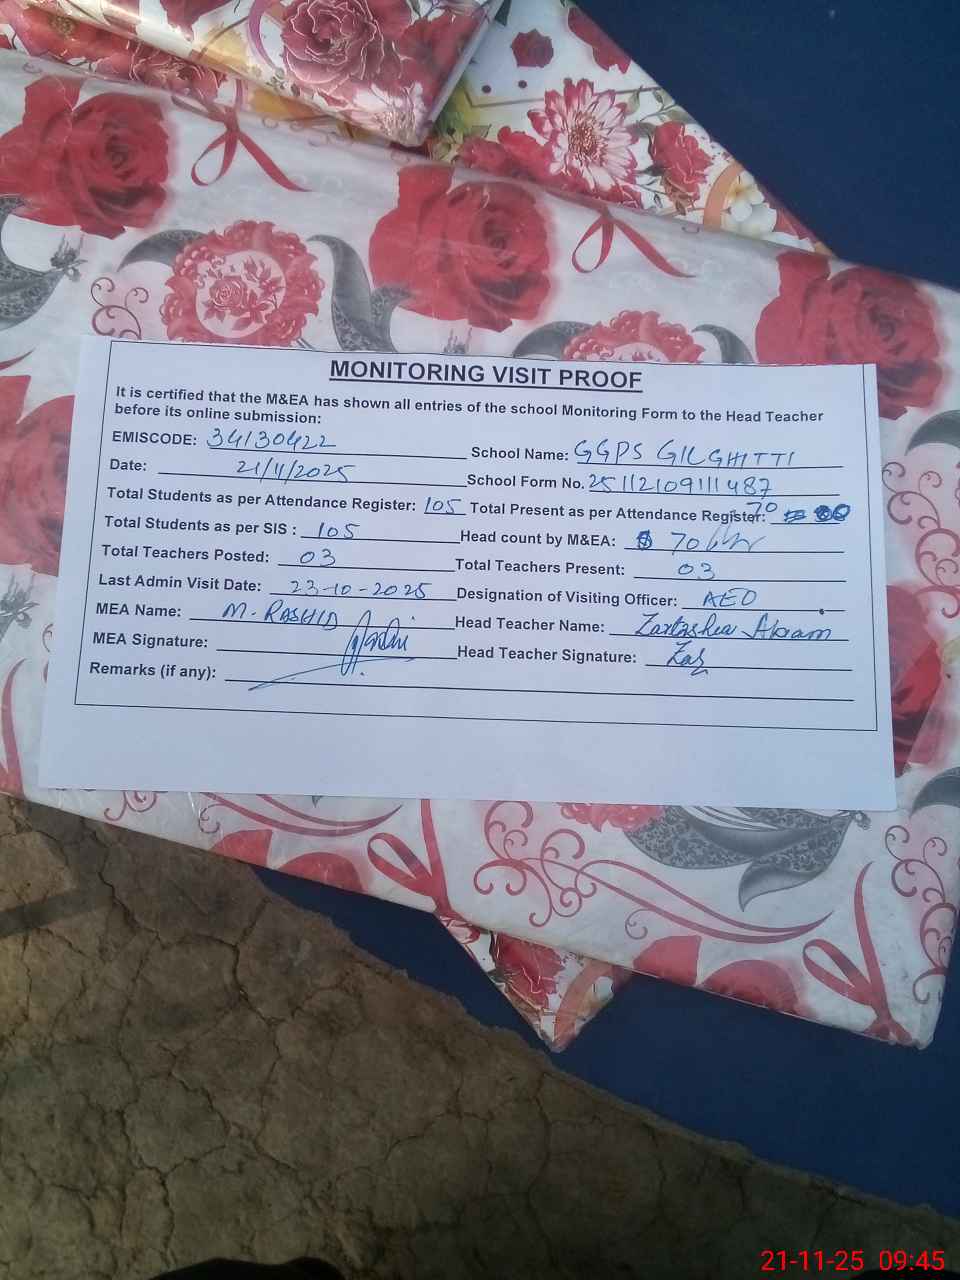 MONITORING VISIT PROOF
It is certified that the M&EA has shown all entries of the school Monitoring Form to the Head Teacher
before its online submission:
EMISCODE: 34130422 School Name: GGPS GILGHITTI
Date: 21/11/2025 School Form No. 25112109111487
Total Students as per Attendance Register: 105 Total Present as per Attendance Register: 70
Total Students as per SIS : 105 Head count by M&EA: 70
Total Teachers Posted: 03 Total Teachers Present: 03
Last Admin Visit Date: 23-10-2025 Designation of Visiting Officer: AEO
MEA Name: M. RASHID Head Teacher Name: Zartashea Akram
MEA Signature: Head Teacher Signature: Zar
Remarks (if any):
21-11-25 09:45